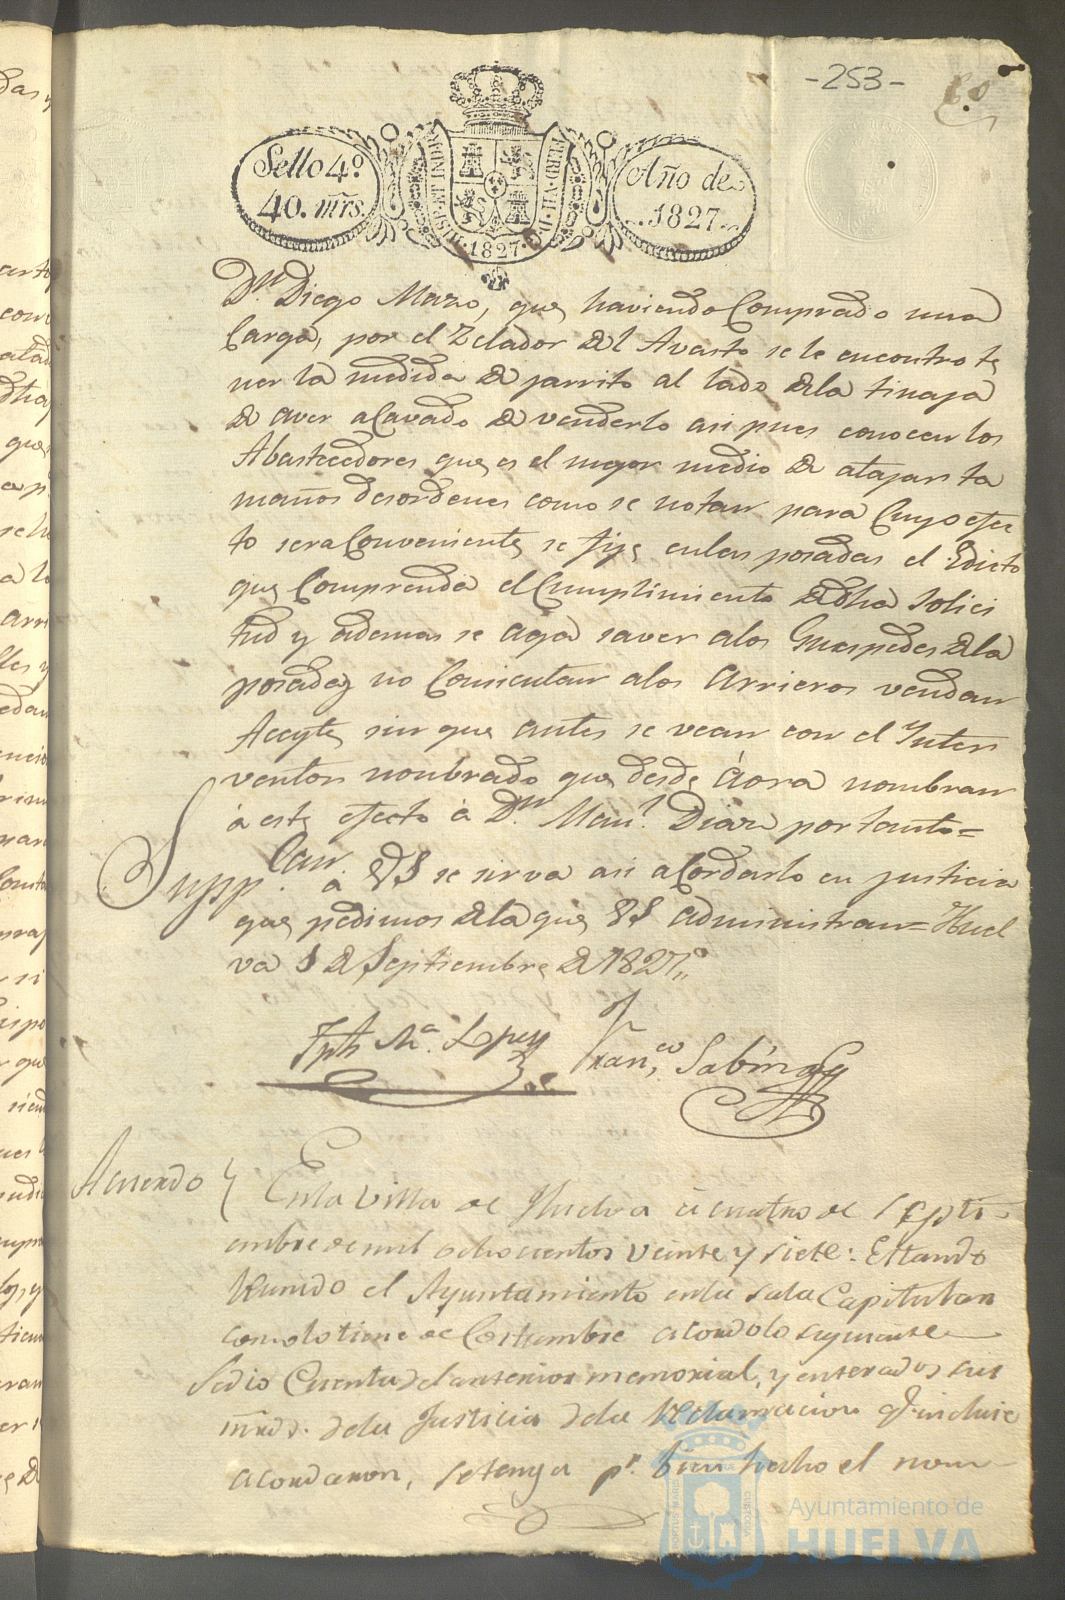 -253-
Sello 4º
40. mrs.
HISP. ET INDIAR
FERD. VII. D. G.
1827
Año de
1827
Dⁿ. Diego Mazo, que haviendo Comprado una
Carga, por el Zelador del Avasto se le encontro te
ner la medida de jarrito al lado dela tinaja
de aver acavado de venderlo asi pues conocen los
Abastecedores que es el mejor medio de atajar ta
maños desordenes como se notan para Cuyo efec
to sera Conveniente se fije enlas posadas el Edicto
que Comprenda el Cumplimiento de dha solici
tud y ademas se aga saver alos Guespedes dela
posadas no Consientan alos Arrieros vendan
Aceyte sin que antes se vean con el Inter
ventor nombrado que desde áora nombran
á este efecto á Dⁿ. Manˡ. Diaz por tanto=
Suppcan. á VS se sirva asi acordarlo en justicia
que pedimos dela que VS administran= Huel
va 3 de Septiembre de 1827
Jph Mª. Lopez
Franco. Sabino
Acuerdo
Enla Villa de Huelva á cuatro de Septi-
embre de mil ochocientos veinte y siete: Estando
Reunido el Ayuntamiento enla sala Capitular
como lo tiene de Costumbre acordo lo siguiente
Sedio Cuenta del anterior memorial, y enterados sus
mrds. dela Justicia dela Reclamacion q. incluie
acordaron, se tenga pr. bien hecho el nom-
Ayuntamiento de
HUELVA